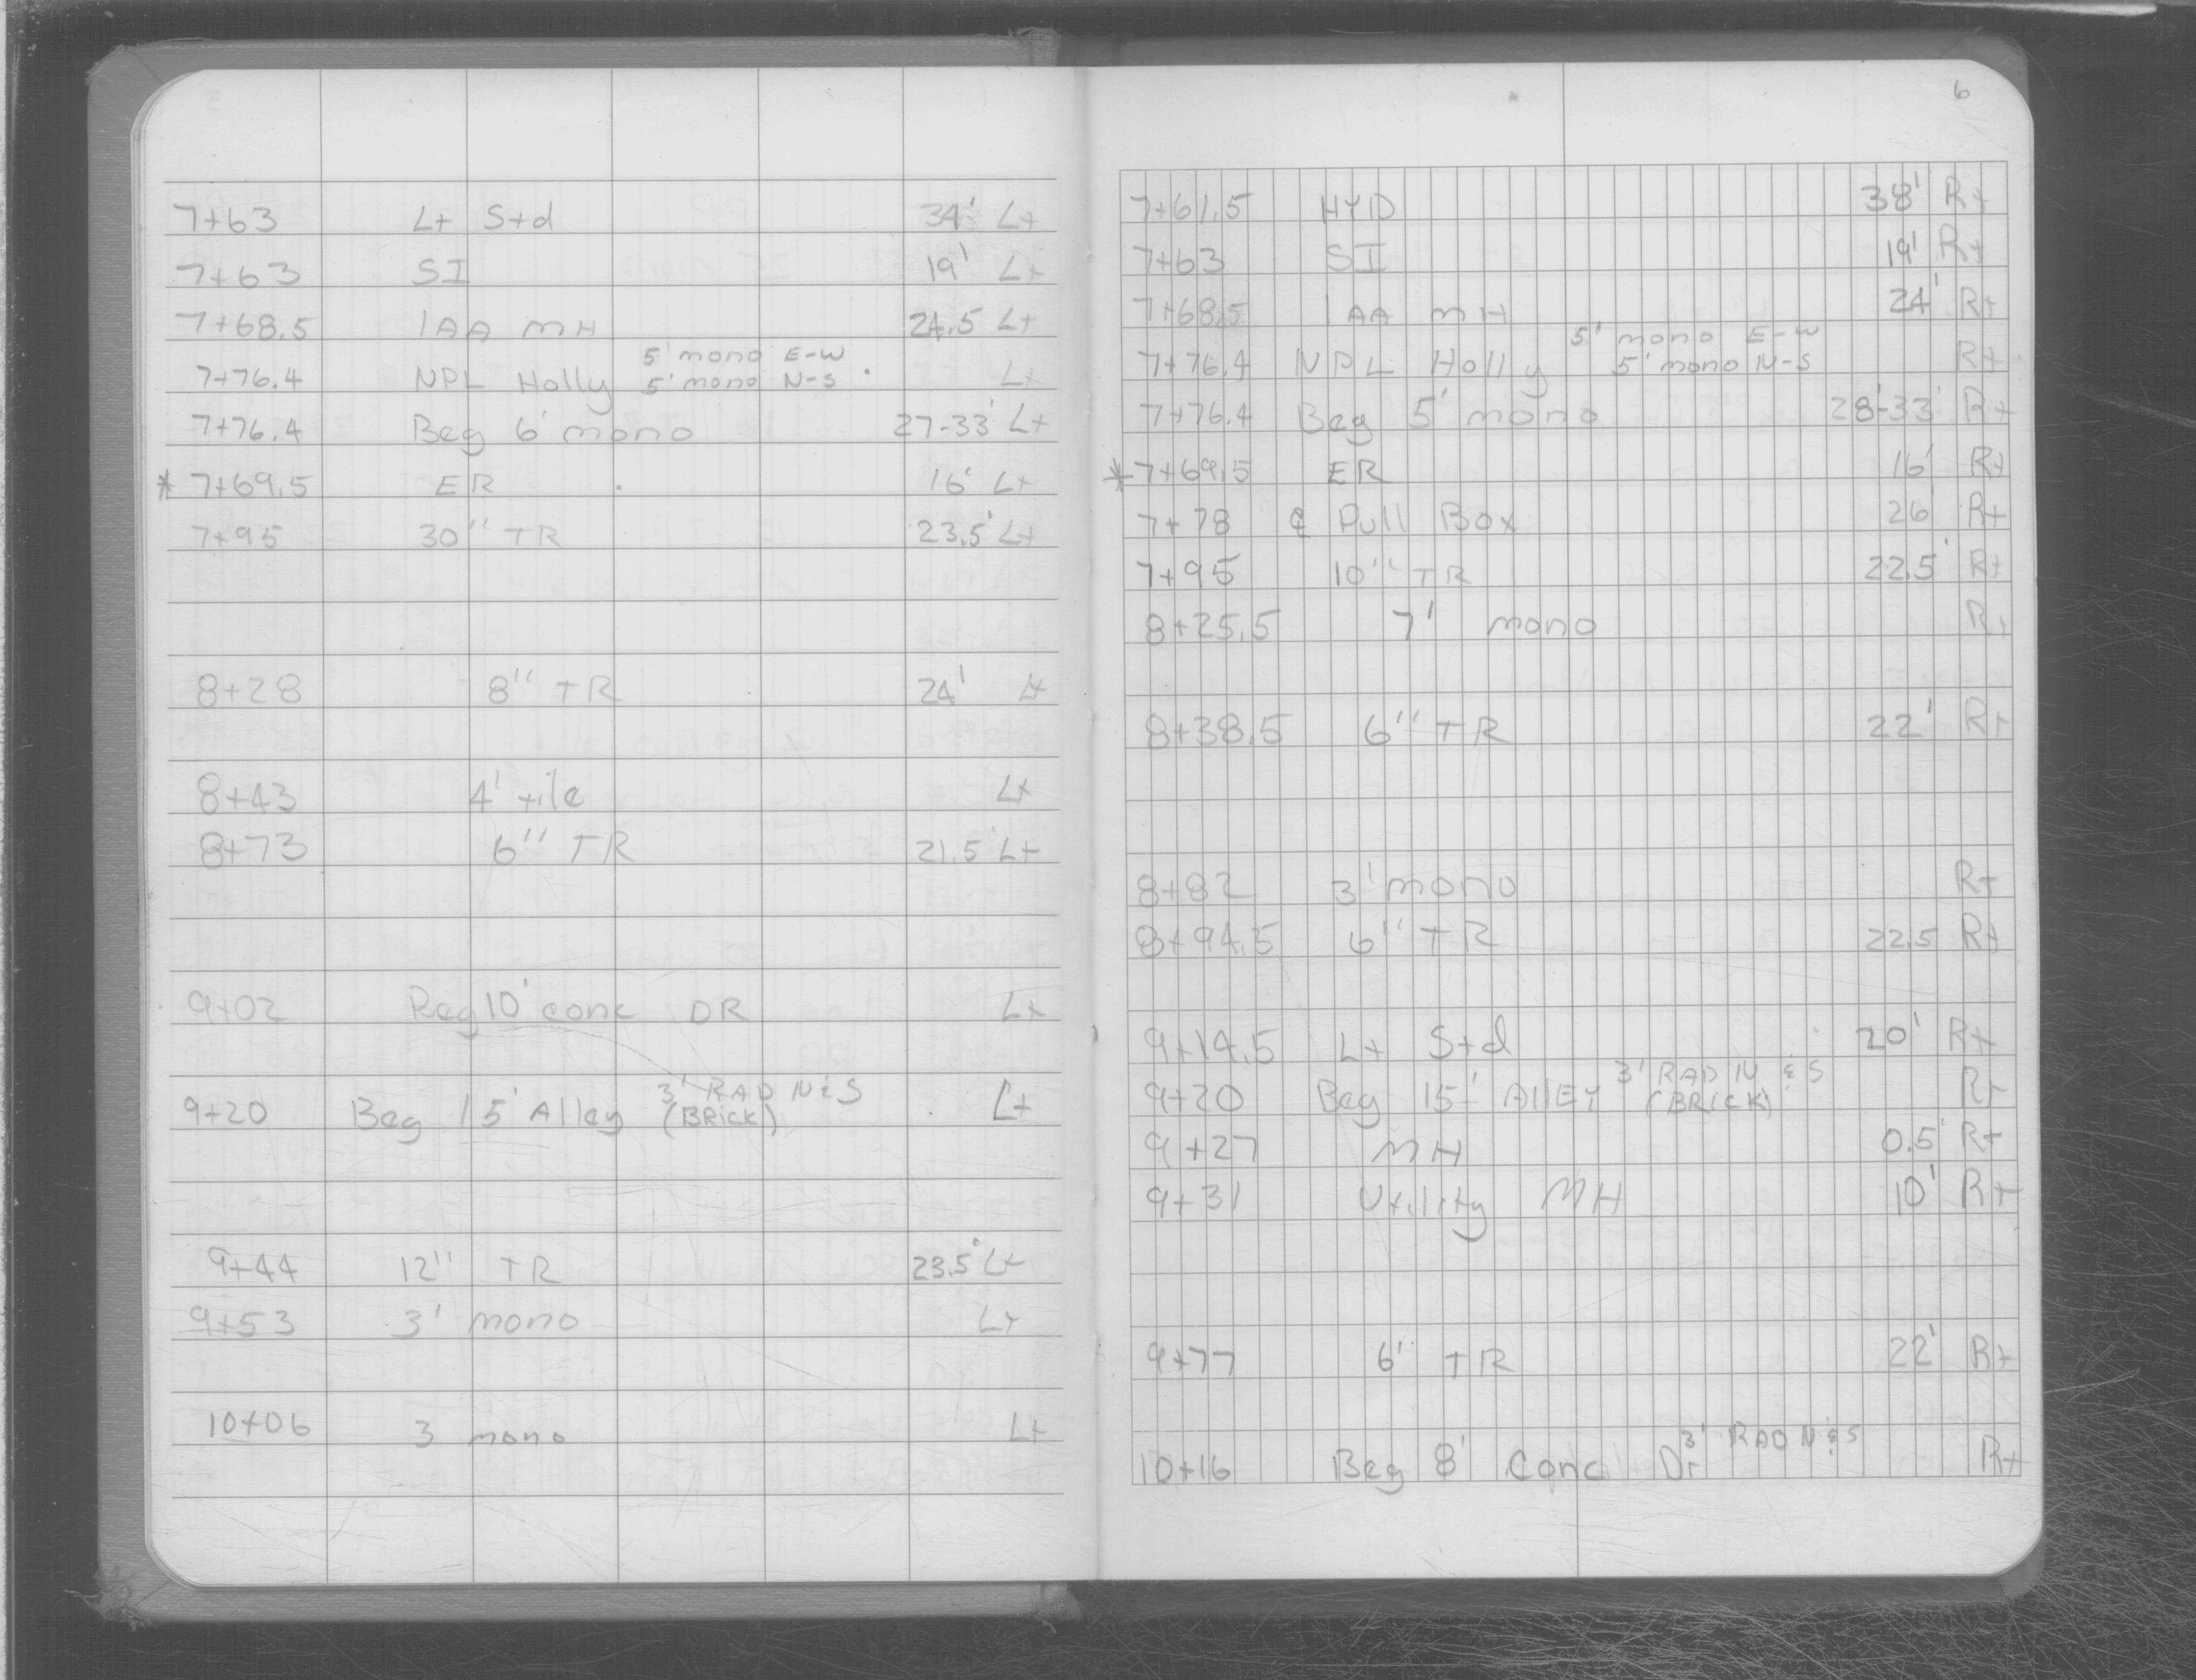 7+63 Lt Std 34' Lt
7+63 SI 19' Lt
7+68.5 1AA MH 24.5 Lt
5' mono E-W
7+76.4 NPL Holly 5' mono N-S Lt
7+76.4 Beg 6' mono 27-33' Lt
* 7+69.5 ER 16' Lt
7+95 30" TR 23.5' Lt
8+28 8" TR 24' Lt
8+43 4' tile Lt
8+73 6" TR 21.5' Lt
9+02 Beg 10' conc DR Lt
3' RAD N & S
9+20 Beg 15' Alley (BRICK) Lt
9+44 12" TR 23.5' Lt
9+53 3' mono Lt
10+06 3 mono Lt
6
7+61.5 HYD 38' Rt
7+63 SI 19' Rt
7+68.5 1AA MH 24' Rt
5' mono E-W
7+76.4 NPL Holly 5' mono N-S Rt
7+76.4 Beg 5' mono 28'-33' Rt
* 7+69.5 ER 16' Rt
7+78 ℄ Pull Box 26' Rt
7+95 10" TR 22.5' Rt
8+25.5 7' mono Rt
8+38.5 6" TR 22' Rt
8+82 3' mono Rt
8+94.5 6" TR 22.5 Rt
9+14.5 Lt Std 20' Rt
3' RAD N & S
9+20 Beg 15' AllEY (BRICK) Rt
9+27 MH 0.5' Rt
9+31 Utility MH 10' Rt
9+77 6" TR 22' Rt
3' RAD N & S
10+16 Beg 8' Conc Dr Rt